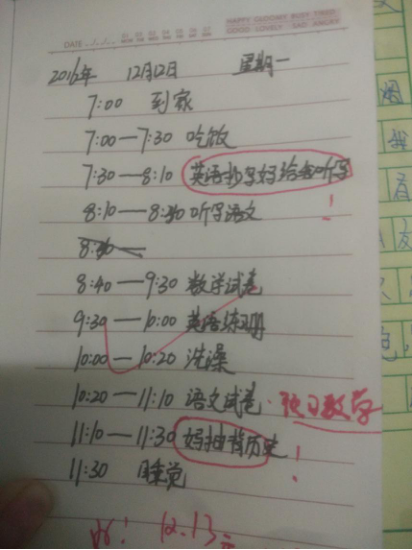 DATE
HAPPY GLOOMY BUSY TIRED
GOOD LOVELY SAD ANGRY
2016年 12月12日 星期一
7:00 到家
7:00—7:30 吃饭
7:30—8:10 英语抄写妈给我听写
!
8:10—8:30 听写语文
8:30—
8:40—9:30 数学试卷
9:30—10:00 英语练习册
10:00—10:20 洗澡
10:20—11:10 语文试卷·预习数学
11:10—11:30 妈抽背历史!
11:30 睡觉
12.13